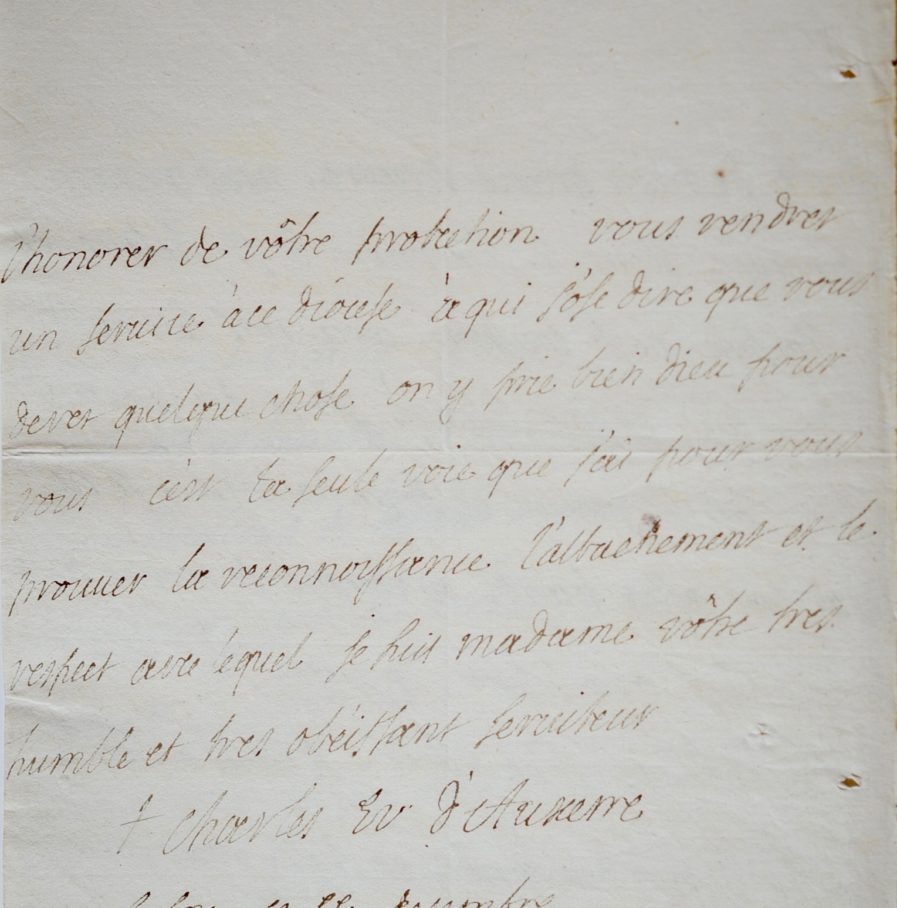 l'honorer de vôtre protection vous rendres
un service à ce diocese à qui j'ose dire que vous
deves quelque chose on y prie bien dieu pour
vous c'est la seule voie que j'ai pour vous
prouver la reconnoissance l'attachement et le
respect avec lequel je suis madame vôtre tres
humble et tres obéissant serviteur
† Charles Ev d'Auxerre
decembre